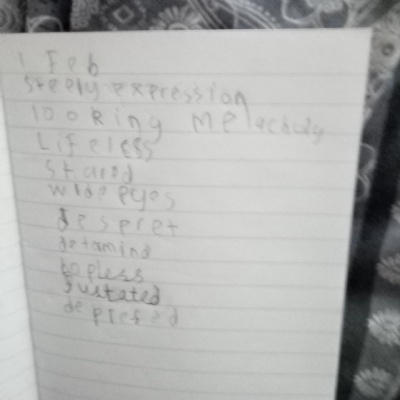 1 Feb
steely expression
looking melachuly
Lifeless
stared
wide eyes
despret
detamind
hopless
fustated
deprefed